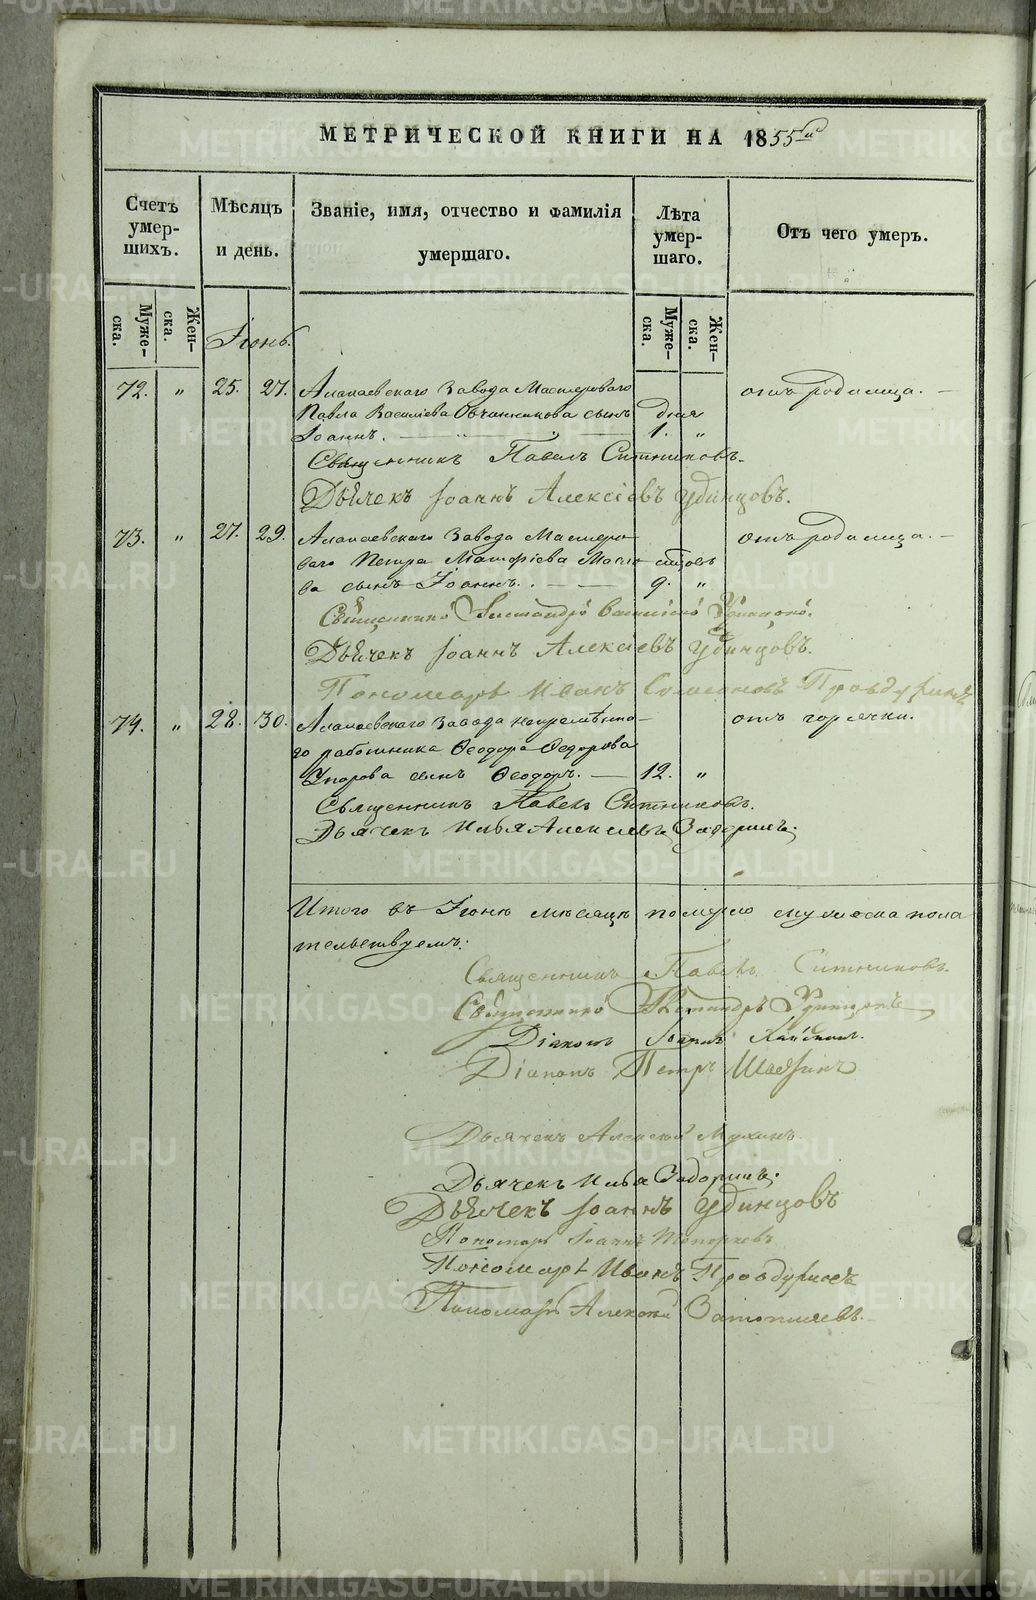 МЕТРИЧЕСКОЙ КНИГИ НА 1855й
Счетъ умер-шихъ.
Мѣсяцъ и день.
Званіе, имя, отчество и фамилія умершаго.
Лѣта умер-шаго.
Отъ чего умеръ.
Муже-ска.
Жен-ска.
Муже-ска.
Жен-ска.
Іюнь.
72. " 25. 27. Алапаевскаго Завода Мастероваго отъ родимца. —
Павла Васильева Овчинникова сынъ дня
Іоаннъ. — " — 1. "
Священникъ Павелъ Ситниковъ.
Дьячекъ Іоаннъ Алексіевъ Удинцовъ.
73. " 27. 29. Алапаевскаго Завода Мастеро- отъ родимца. —
ваго Петра Матфіева Масло
ва сынъ Іоаннъ. — 9. "
Священникъ Удинцовъ.
Дьячекъ Іоаннъ Алексіевъ Удинцовъ.
Пономарь Иванъ Симеоновъ
74. " 28. 30. Алапаевскаго Завода непремѣнна- отъ горячки.
го работника Ѳеодора Ѳедорова
сынъ Ѳеодоръ. — 12. "
Священникъ Павелъ Ситниковъ.
Дьячекъ Илья Алексіевъ Задоринъ.
Итого въ Іюнѣ мѣсяцѣ померло мужеска пола
тельствуемъ:
Священникъ Павелъ Ситниковъ.
Священникъ Удинцовъ
Діаконъ Іоаннъ
Діаконъ Петръ
Дьячекъ Алексѣй Мухинъ.
Дьячекъ Илья Задоринъ.
Дьячекъ Іоаннъ Удинцовъ
Пономарь Іоаннъ Топорковъ
Пономарь Иванъ
Пономарь Алексѣй
METRIKI.GASO-URAL.RU